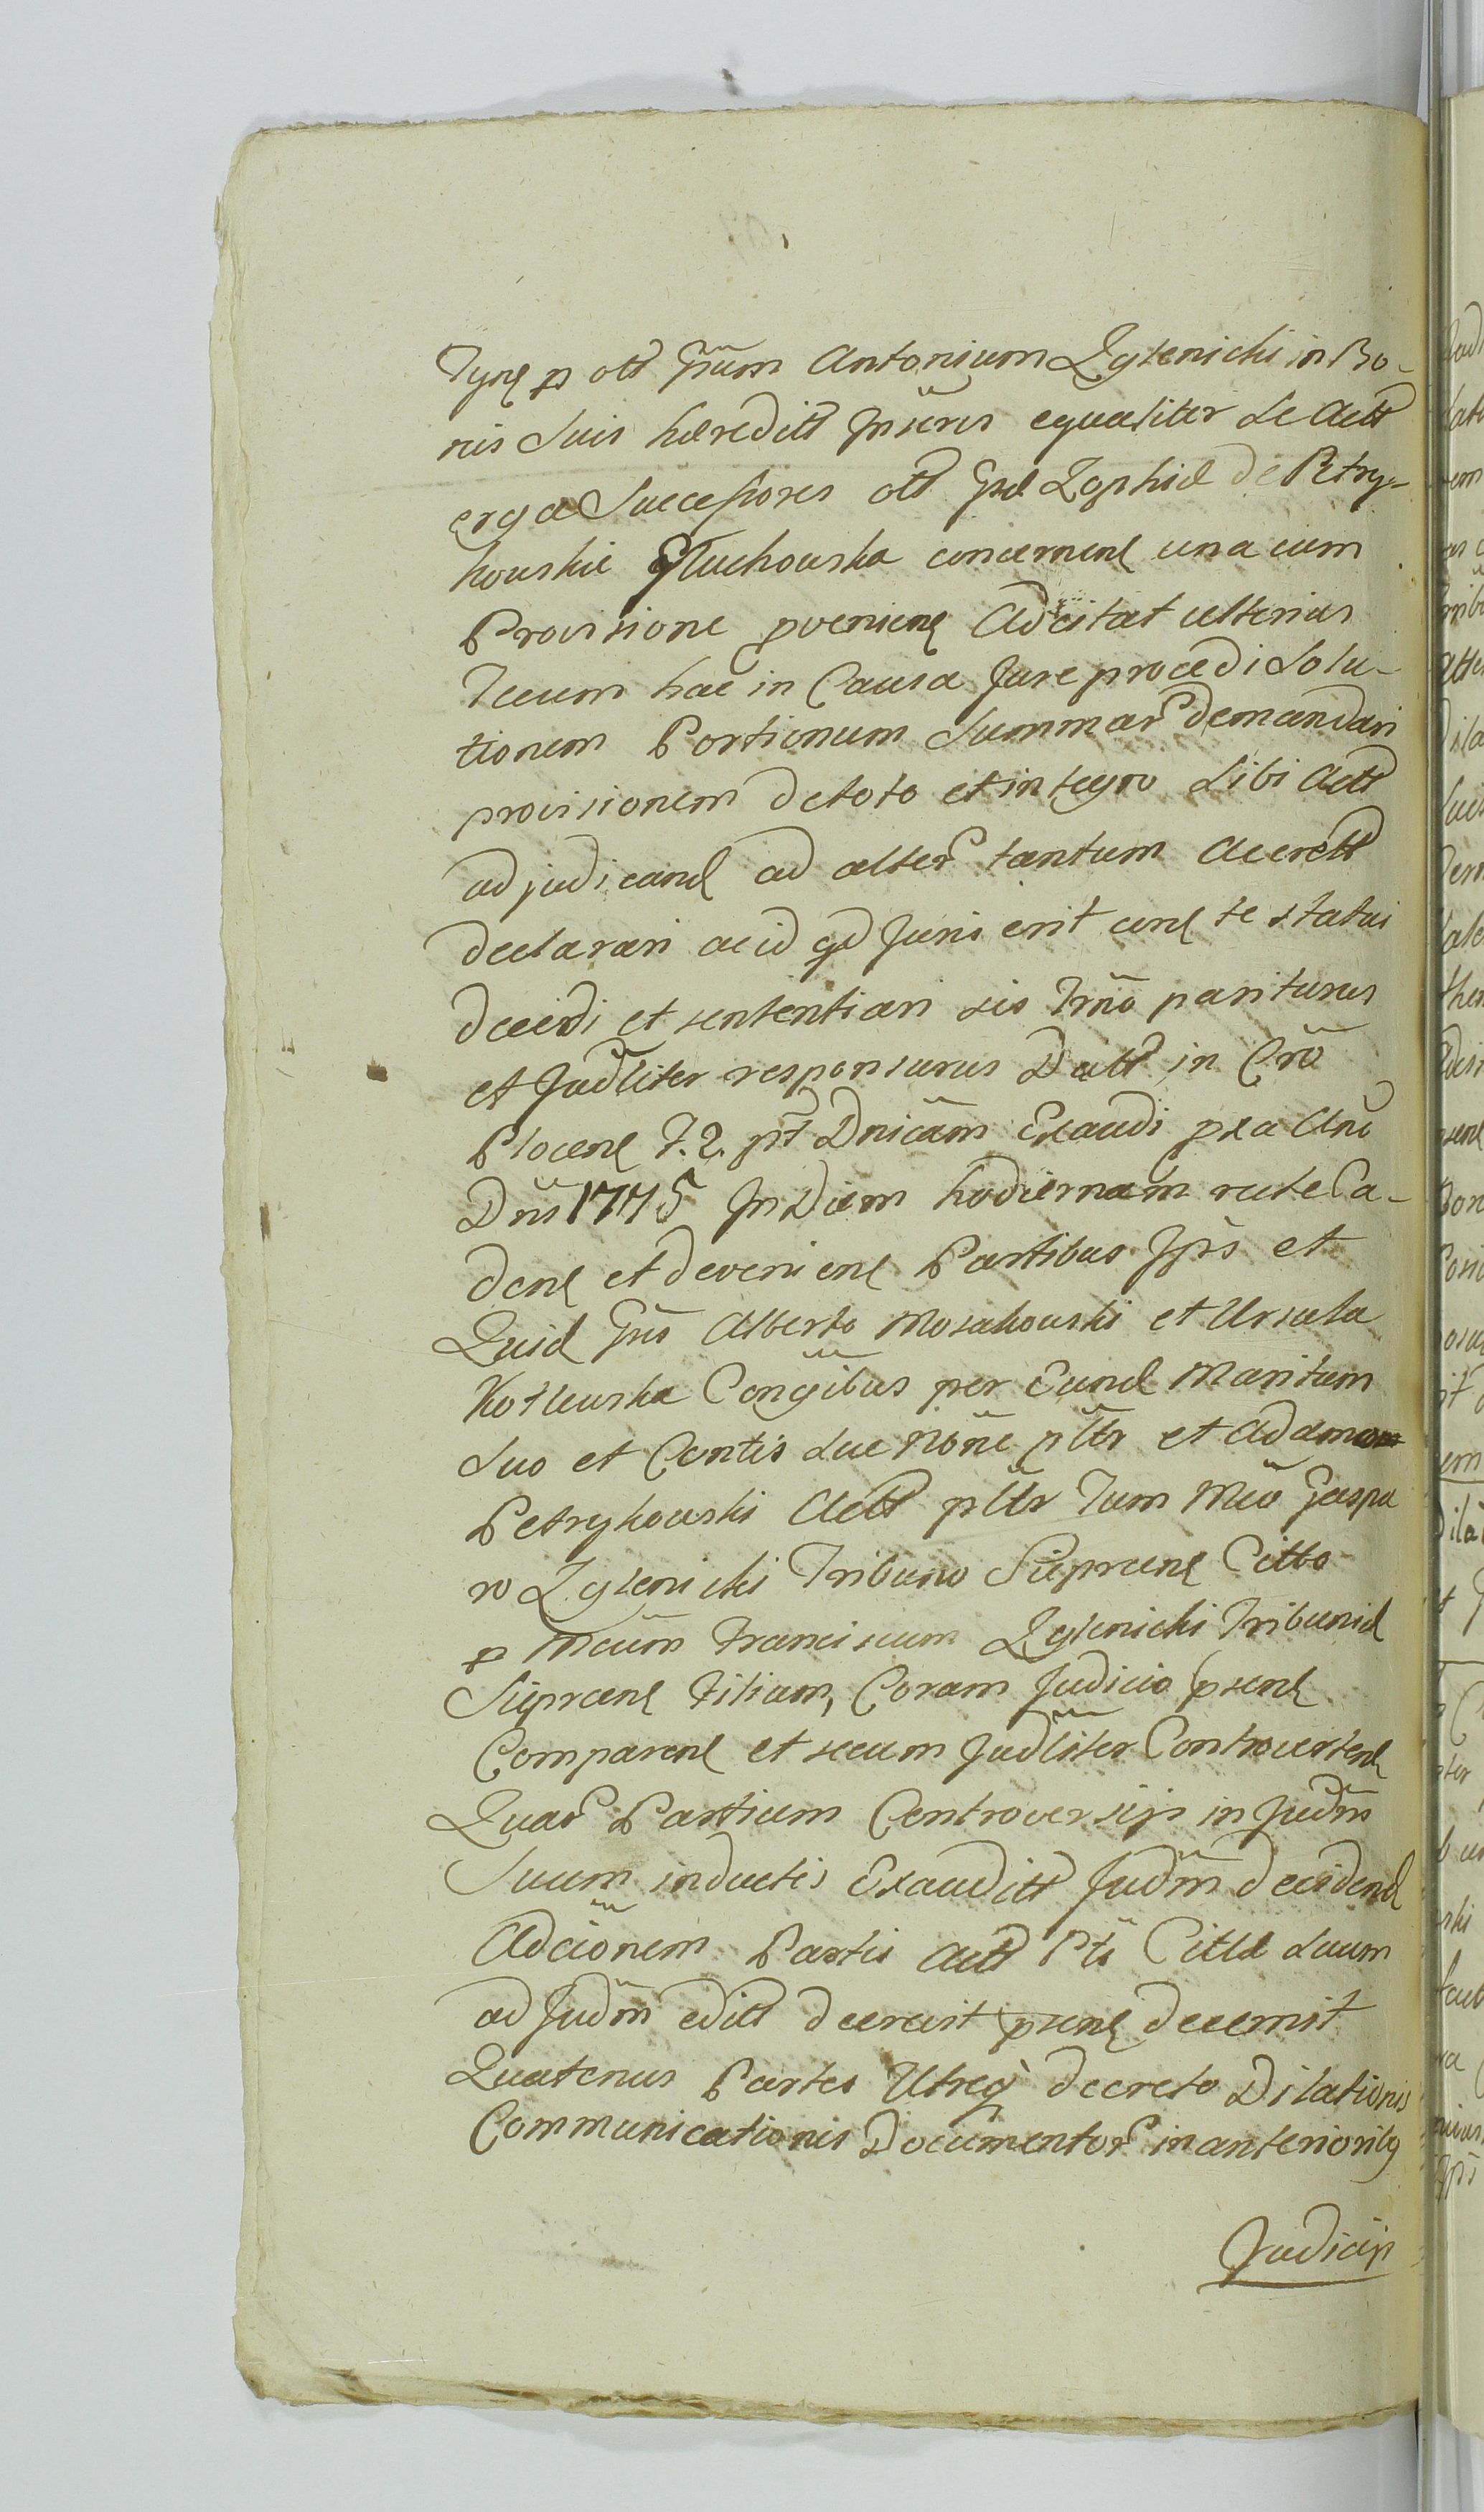 Tyne p olt Gnum Antonium Zglenicki in Bo-
nis Suis hæreditt Inscris equaliter se Actt
erga Successores olt Gsæ Zophiæ de Petry-
kowskie Głuchowska concernen una cum
Provisione pvenien Adcitat ulterius
Tecum hac in Causa Jure procedi Solu-
tionem Portionum Summar demandari
provisionem de toto et integro Sibi Actt
adjudicand ad alter tantum Accrett
declarari ac id qd Juris erit cond te statui
decidi et sententiari sis Trno pariturus
et Judliter responsurus Datt in Cro
Plocen F. 2. pt Dnicam Exaudi pxa Ano
Dni 1775 In Diem hodiernam rite Ca-
den et devenien Partibus Ipis et
Quid Gnis Alberto Mosakowski et Ursula
Kotkuska Congibus per Eund Maritum
Suo et Contis Suæ Noñe pltr et Adamo
Petrykowski Actt pltr Tum Mco Gaspa
ro Zglenicki Tribuno Sieprcen Citto
p Mcum Franciscum Zglenicki Tribunid
Sieprcen Filium, Coram Judicio psend
Comparen et secum Judliter Controverten
Quar Partium Controversijs in Judm
Suum inductis Exauditt Judm decidend
Adcionem Partis Actt Pti Cittæ Suum
ad Judm editt decrevit psend decernit
Quatenus Partes Utreq decreto Dilationis
Communicationis Documentor in anteriorib9
Judicijs